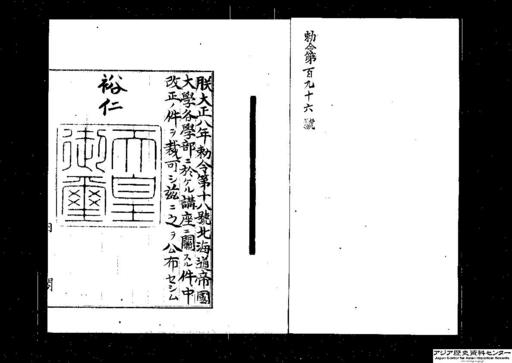 勅令第百九十六號
朕大正八年勅令第十八號北海道帝國
大學各學部ニ於ケル講座ニ關スル件中
改正ノ件ヲ裁可シ茲ニ之ヲ公布セシム
裕仁
天皇
御璽
アジア歴史資料センター
Japan Center for Asian Historical Records